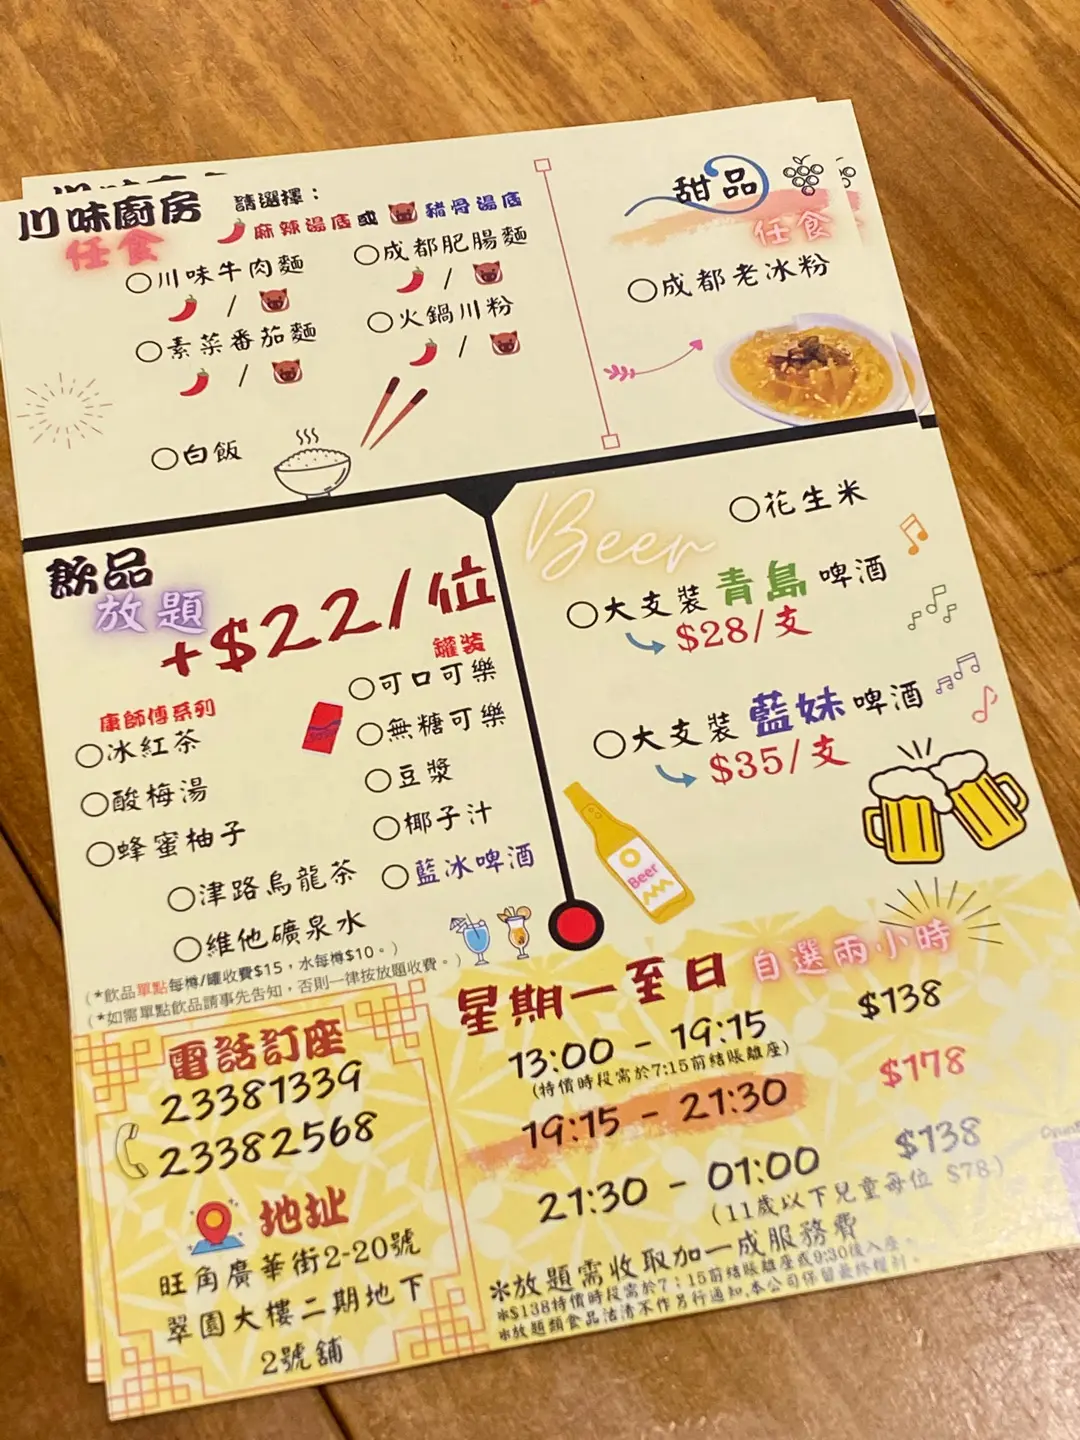 川味廚房
任食
請選擇：
麻辣湯底或豬骨湯底
○川味牛肉麵
/
○成都肥腸麵
/
○素菜番茄麵
/
○火鍋川粉
/
○白飯
甜品
任食
○成都老冰粉
飲品
放題
+$22/位
康師傅系列
○冰紅茶
○酸梅湯
○蜂蜜柚子
○津路烏龍茶
○維他礦泉水
罐裝
○可口可樂
○無糖可樂
○豆漿
○椰子汁
○藍冰啤酒
(*飲品單點每樽/罐收費$15，水每樽$10。)
(*如需單點飲品請事先告知，否則一律按放題收費。)
Beer
○花生米
○大支裝青島啤酒
$28/支
○大支裝藍妹啤酒
$35/支
Beer
電話訂座
23381339
23382568
地址
旺角廣華街2-20號
翠園大樓二期地下
2號舖
星期一至日 自選兩小時
13:00 - 19:15 $138
(特價時段需於7:15前結賬離座)
19:15 - 21:30 $178
21:30 - 01:00 $138
(11歲以下兒童每位 $78)
*放題需收取加一成服務費
*$138特價時段需於7：15前結賬離座或9:30後入座。
*放題類食品沽清不作另行通知.本公司保留最終權利。